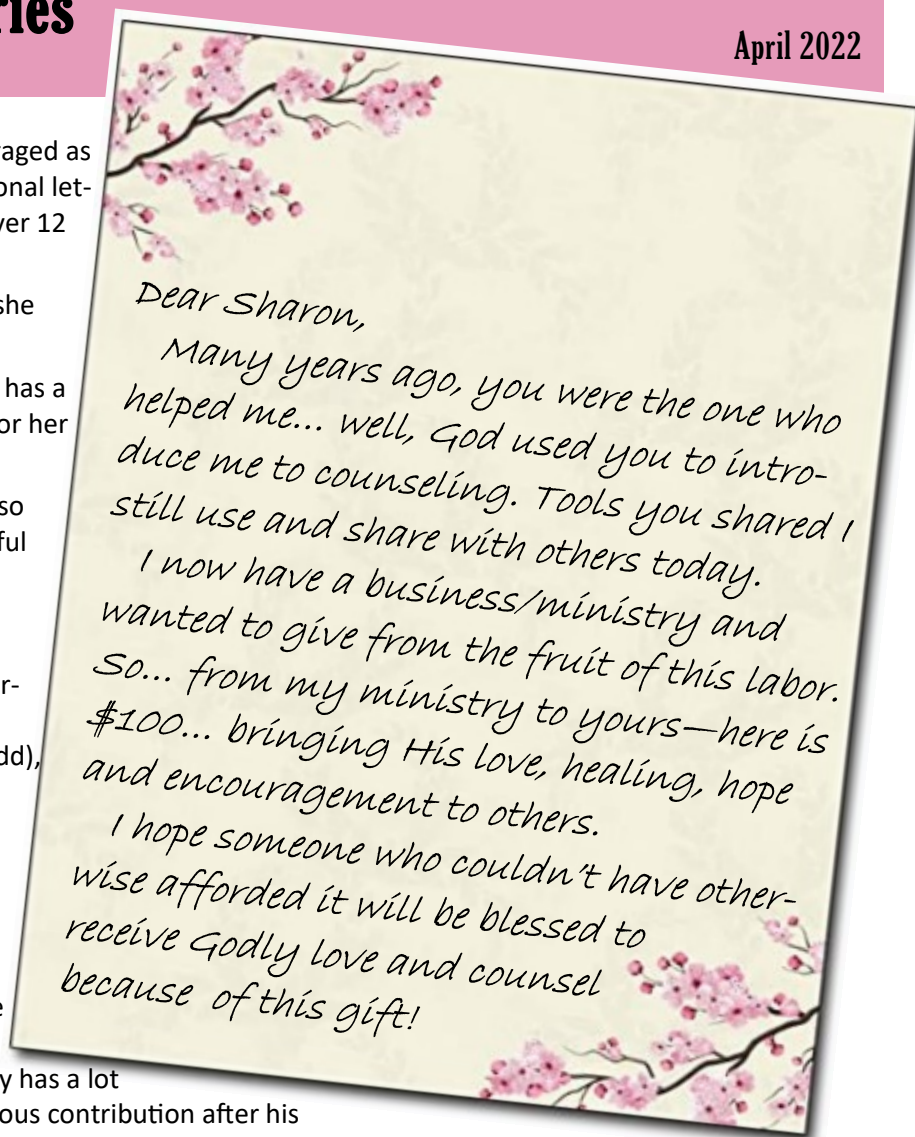 April 2022
as
onal let-
12
she
has a
her
so
dd),
y has a lot
contribution after his
Dear Sharon,
Many years ago, you were the one who
helped me... well, God used you to intro-
duce me to counseling. Tools you shared I
still use and share with others today.
I now have a business/ministry and
wanted to give from the fruit of this labor.
So... from my ministry to yours—here is
$100... bringing His love, healing, hope
and encouragement to others.
I hope someone who couldn't have other-
wise afforded it will be blessed to
receive Godly love and counsel
because of this gift!